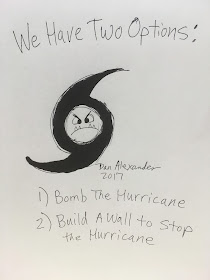 We Have Two Options:
Dan Alexander
2017
1) Bomb The Hurricane
2) Build A Wall to Stop
the Hurricane